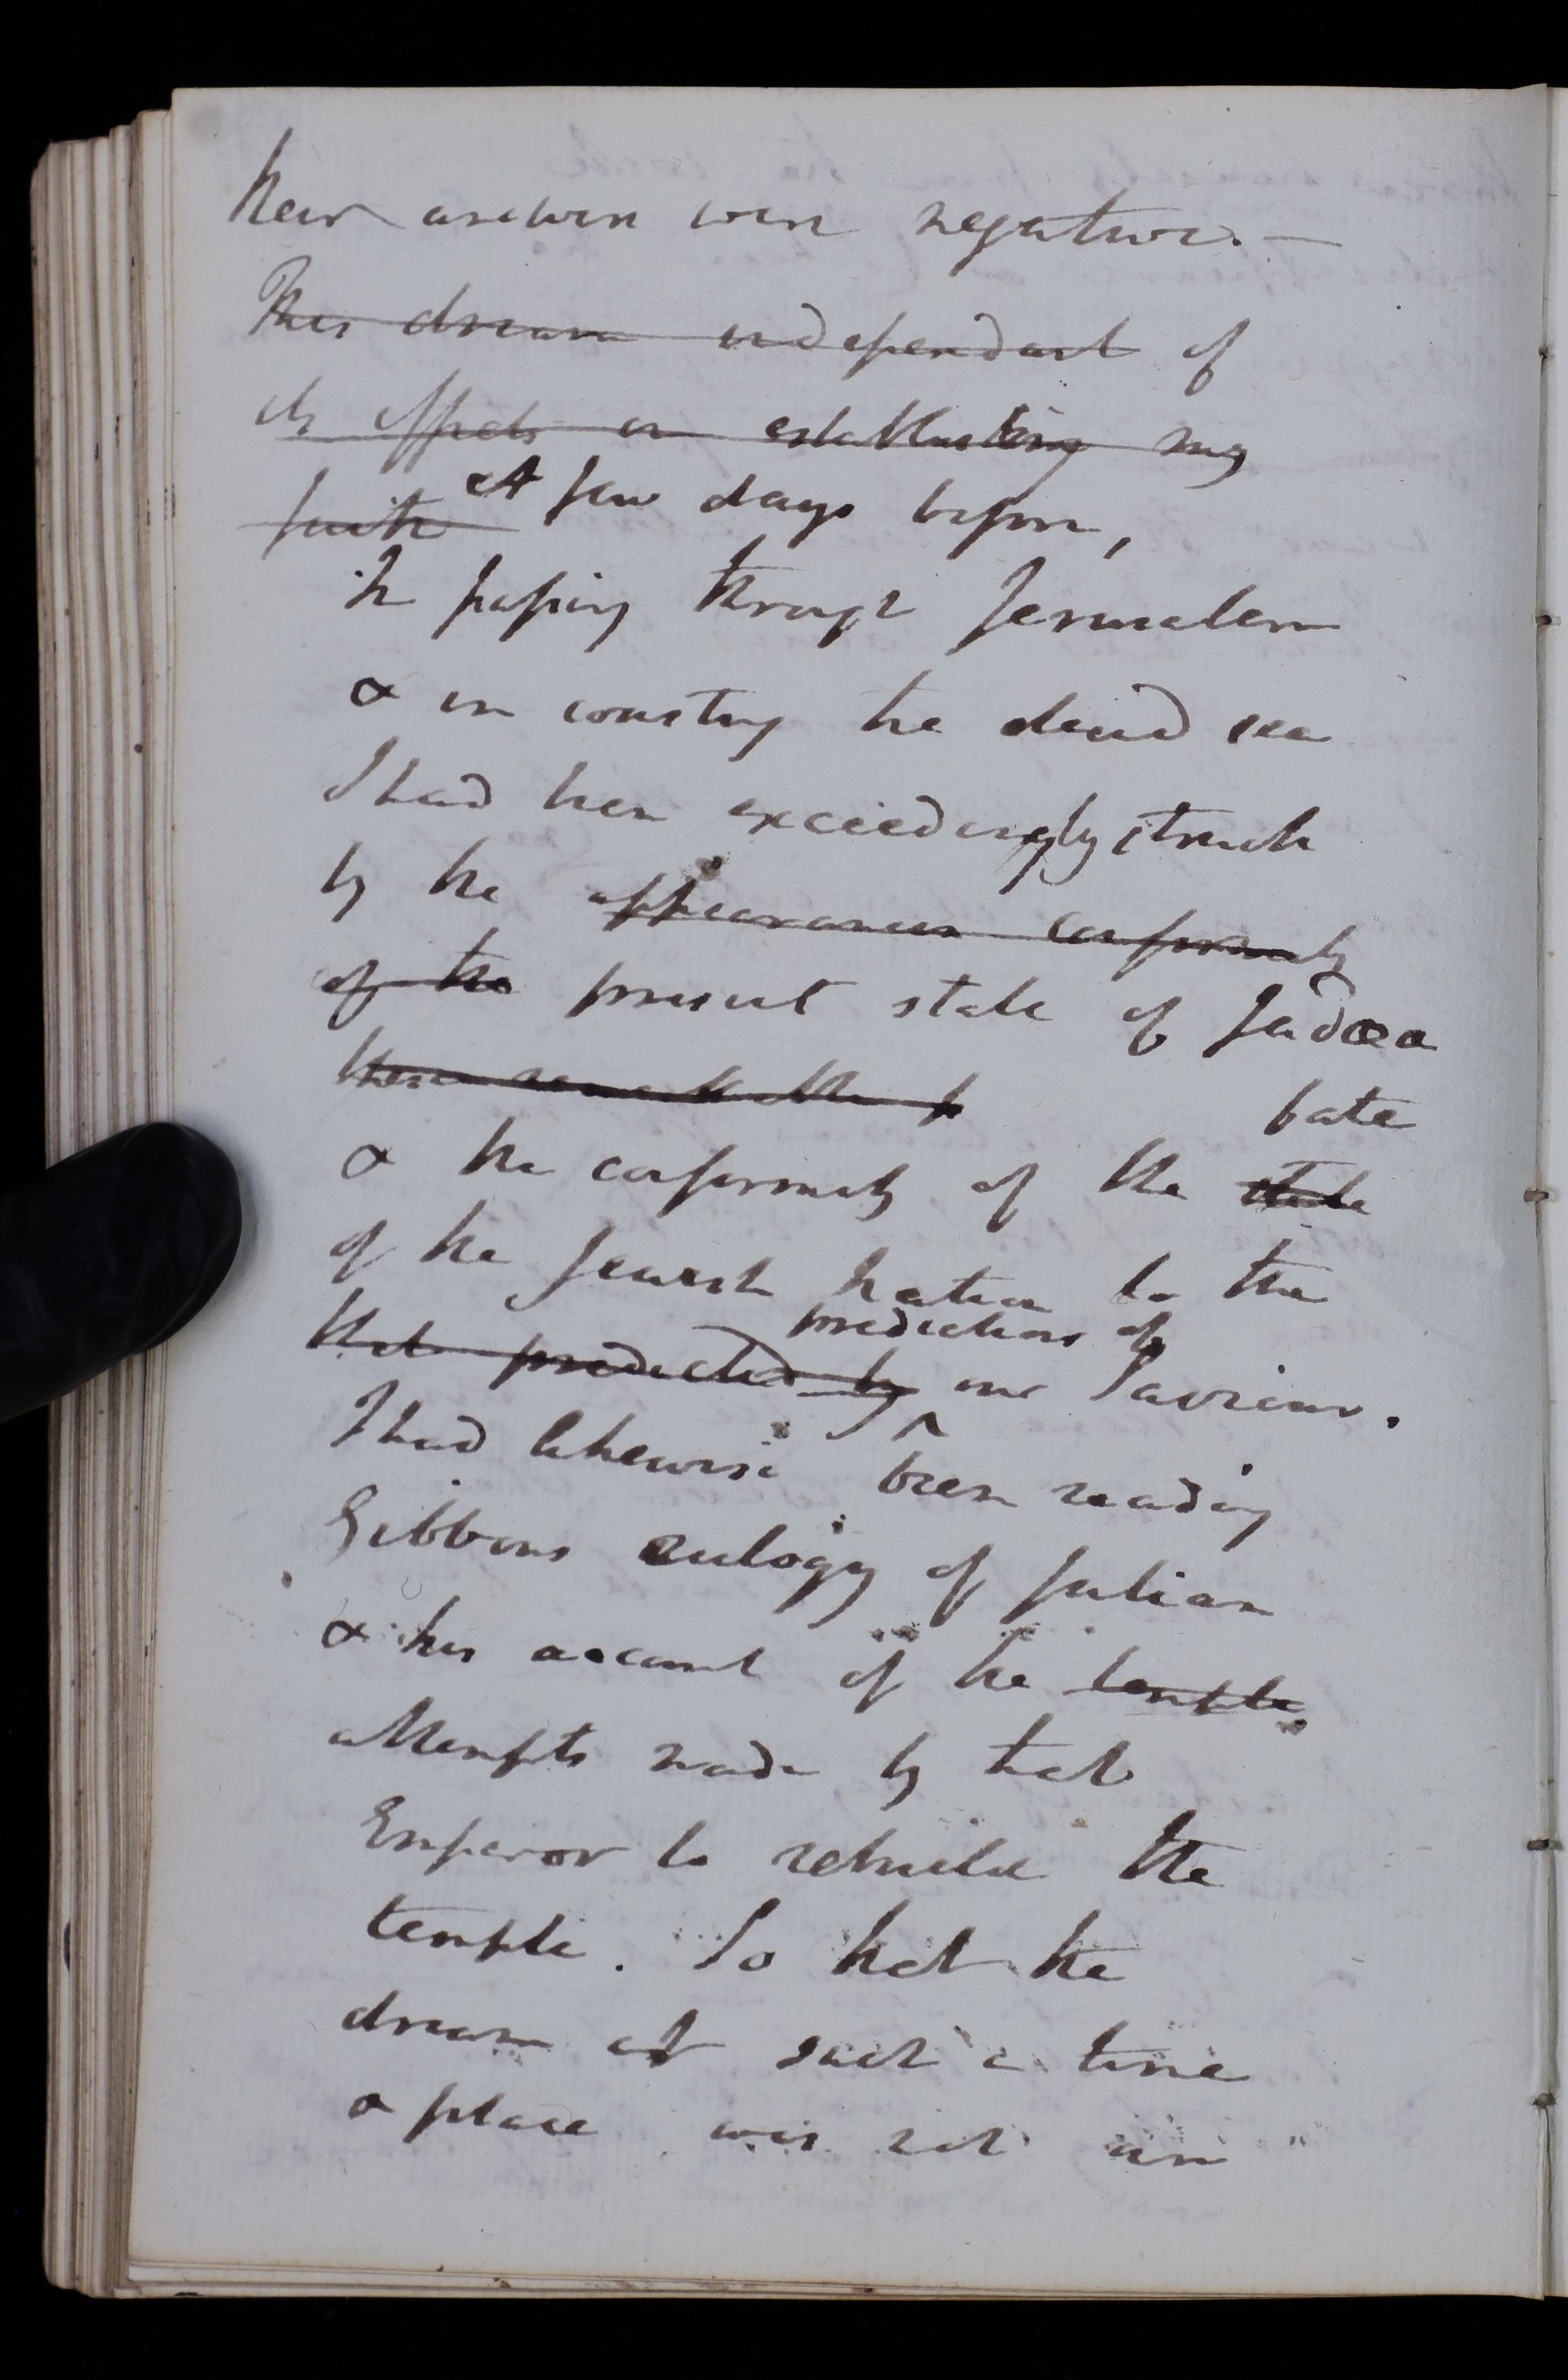 their answers were negative. —
This dream independant of
its effects in establishing my
faith A few days before,
In passing through Jerusalem
& in coasting the dead sea
I had been exceedingly struck
by the appearances conformity
of the present state of Judæa
these remarkable
fate
& the conformity of the state
of the Jewish nation to the
predictions of
that predicted by our Saviour.
I had likewise been reading
Gibbons eulogy of Julian
& his account of the temple
attempts made by that
Emperor to rebuild the
temple. So that the
dream at such a time
& place was not an